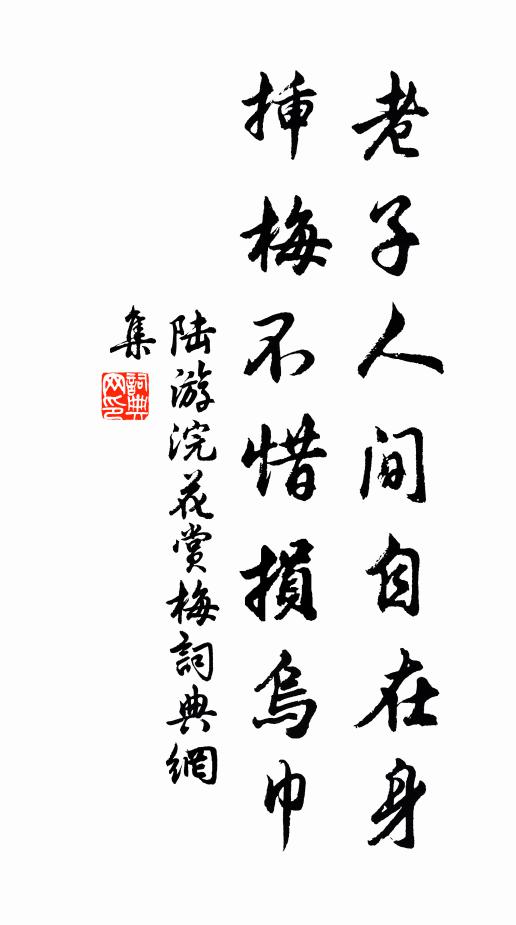 老子人间自在身
插梅不惜損烏巾
陆游浣花赏梅詞典網
集
詞典网印